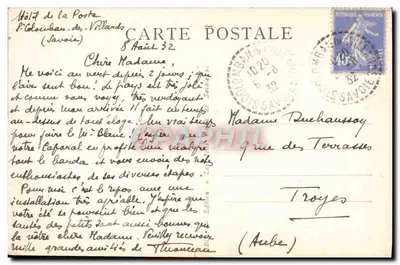 Hôtel de la Poste
St Colomban-des-Villards
(Savoie)
CARTE POSTALE
8 Août 32
Chère Madame,
Me voici au vert depuis 2 jours ; que
l'air sent bon ! Le pays est très joli
et comme vous voyez, très verdoyant
et depuis mon arrivée il fait un temps
au-dessus de tout éloge. Un vrai temps
pour faire le Mt Blanc. J'espère que
votre Caporal en profite bien malgré
tout le barda et vous envoie des notes
enthousiastes de ses diverses étapes.
Pour moi c'est le repos avec une
installation très agréable. J'espère que
votre été se poursuit bien et que les
santés des petits sont aussi bonnes que
la vôtre chère Madame. Veuillez recevoir
mille grandes amitiés de
Madame Buchaussoy
9 rue des Terrasses
Troyes
(Aube)